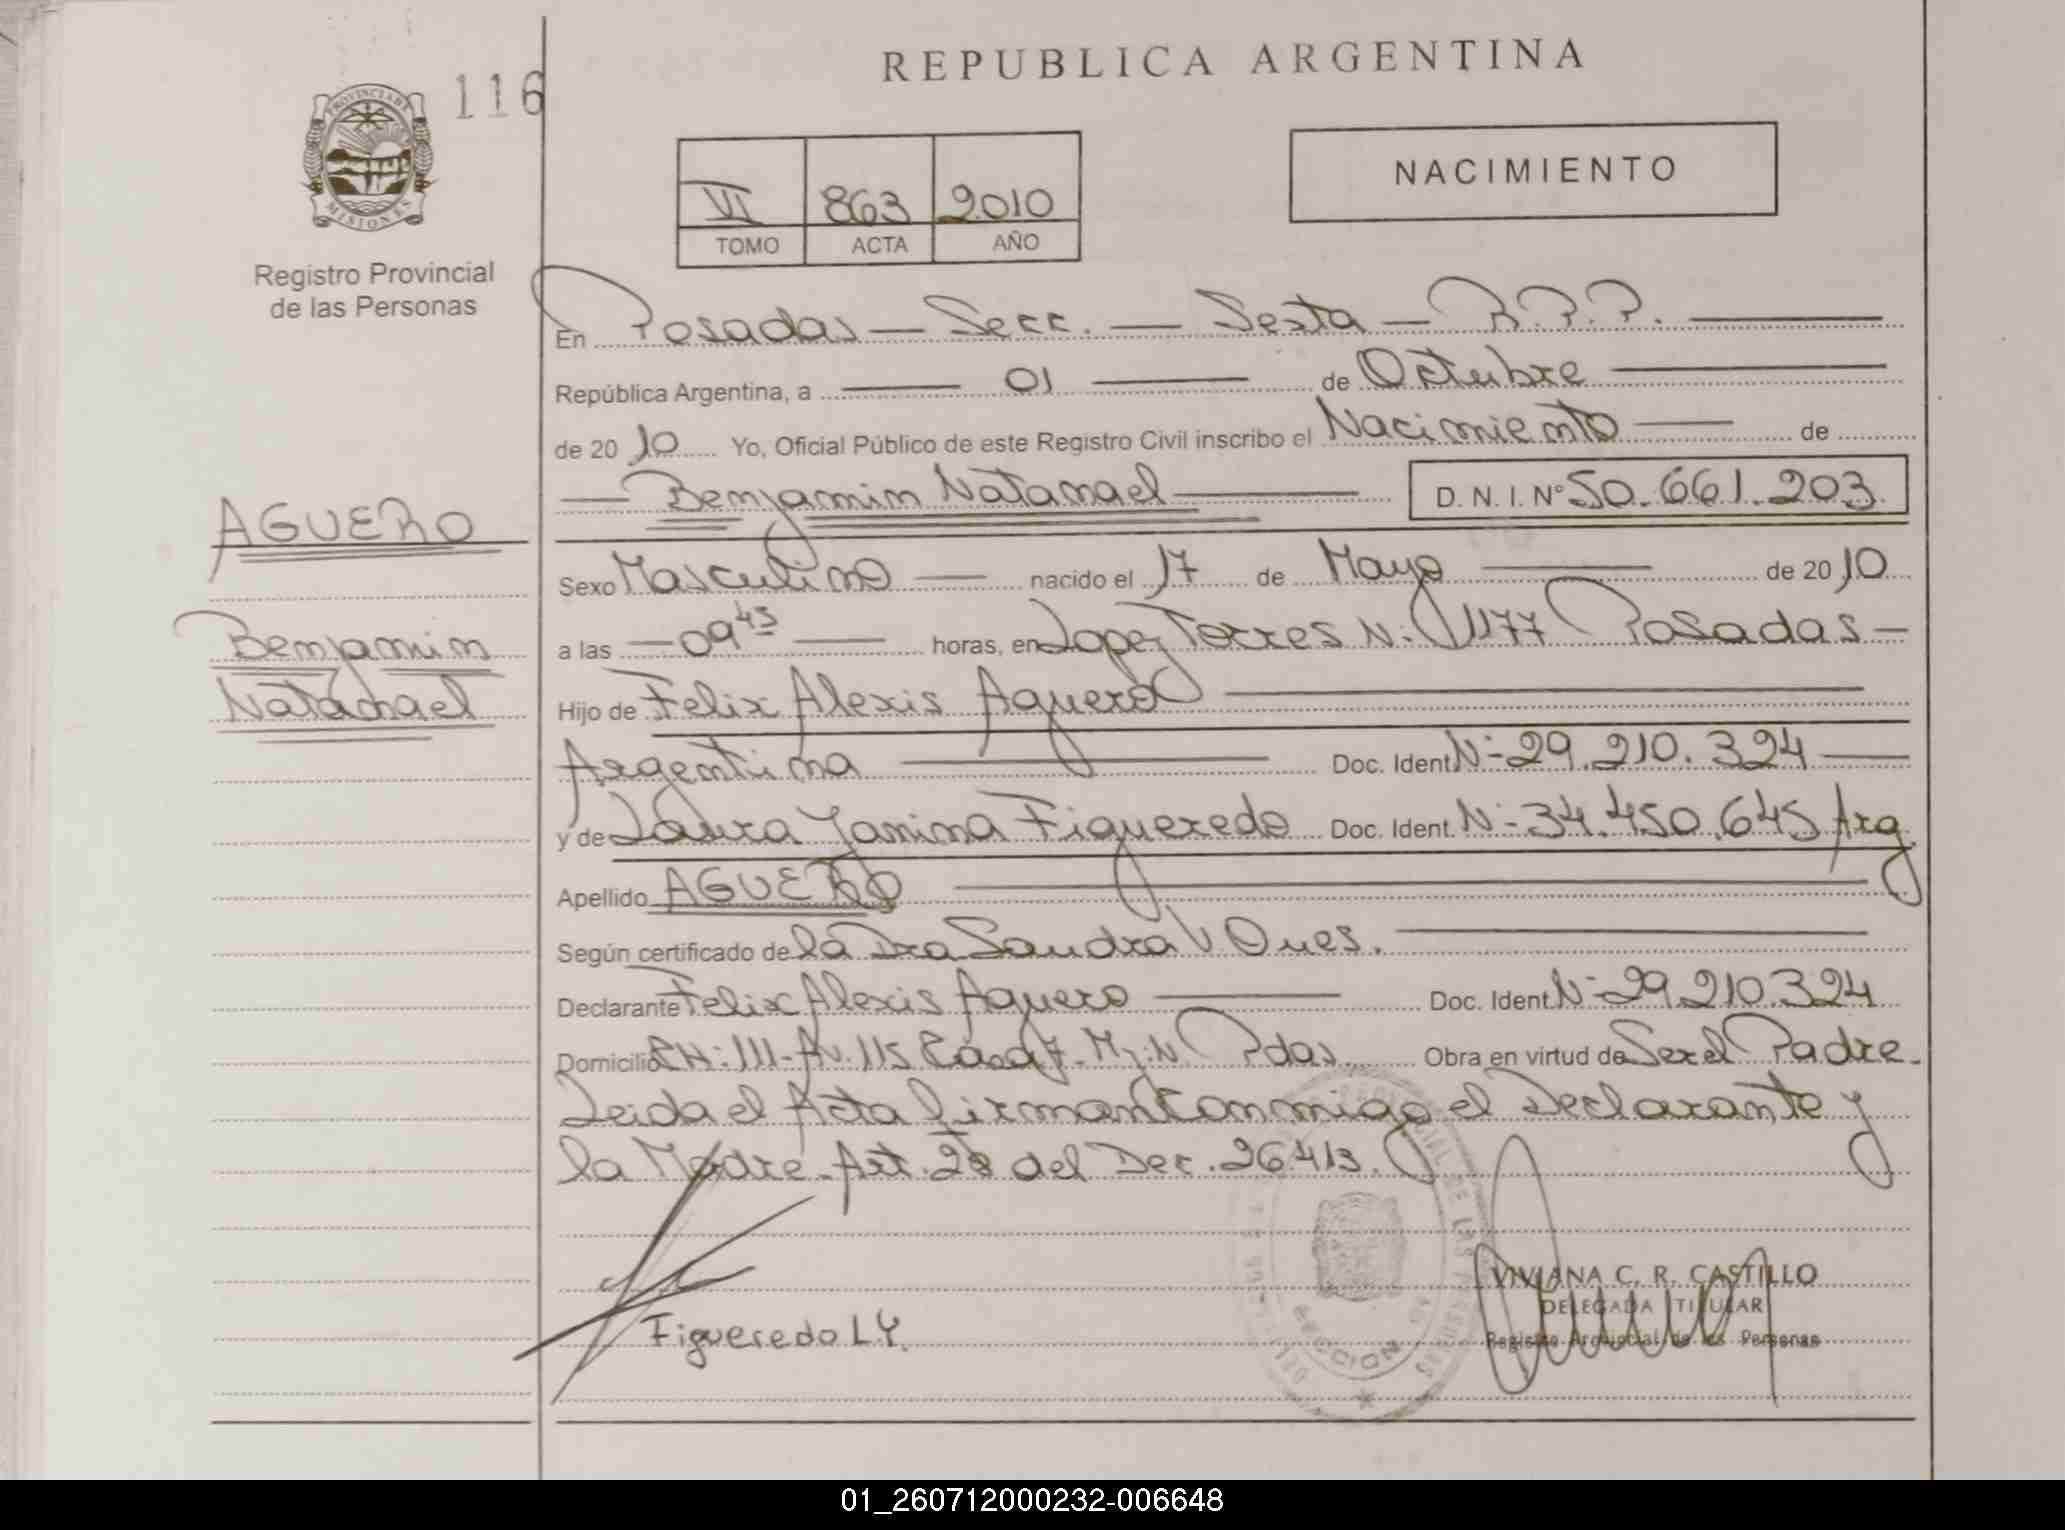 REPUBLICA ARGENTINA
116
PROVINCIA DE
MISIONES
Registro Provincial
de las Personas
VI 863 2010
TOMO ACTA AÑO
NACIMIENTO
En Posadas — Secc. — Sexta — R.P.P.
República Argentina, a — 01 — de Octubre
de 20 10 Yo, Oficial Público de este Registro Civil inscribo el Nacimiento — de
— Benjamin Natanael — D.N.I. Nº 50.661.203
AGUERO
Benjamin
Natanael
Sexo Masculino — nacido el 17 de Mayo — de 20 10
a las — 09 45 — horas, en Lopez Torres N: 1177 Posadas —
Hijo de Felix Alexis Aguero
Argentina — Doc. Ident. N:- 29.210.324 —
y de Laura Yanina Figueredo Doc. Ident. N:- 34.450.645 Arg
Apellido AGUERO
Según certificado de la Dra Sandra V Ques.
Declarante Felix Alexis Aguero — Doc. Ident. N:- 29.210.324
Domicilio CH: 111- Av. 115 Casa 7- Pdas. Obra en virtud de Ser el Padre.
Leida el Acta firman Conmigo el Declarante y
la Madre. Art. 28 del Dec. 26.413.
Figueredo L.Y.
VIVIANA C. R. CASTILLO
DELEGADA TITULAR
Registro Provincial de las Personas
SECCION
01_260712000232-006648